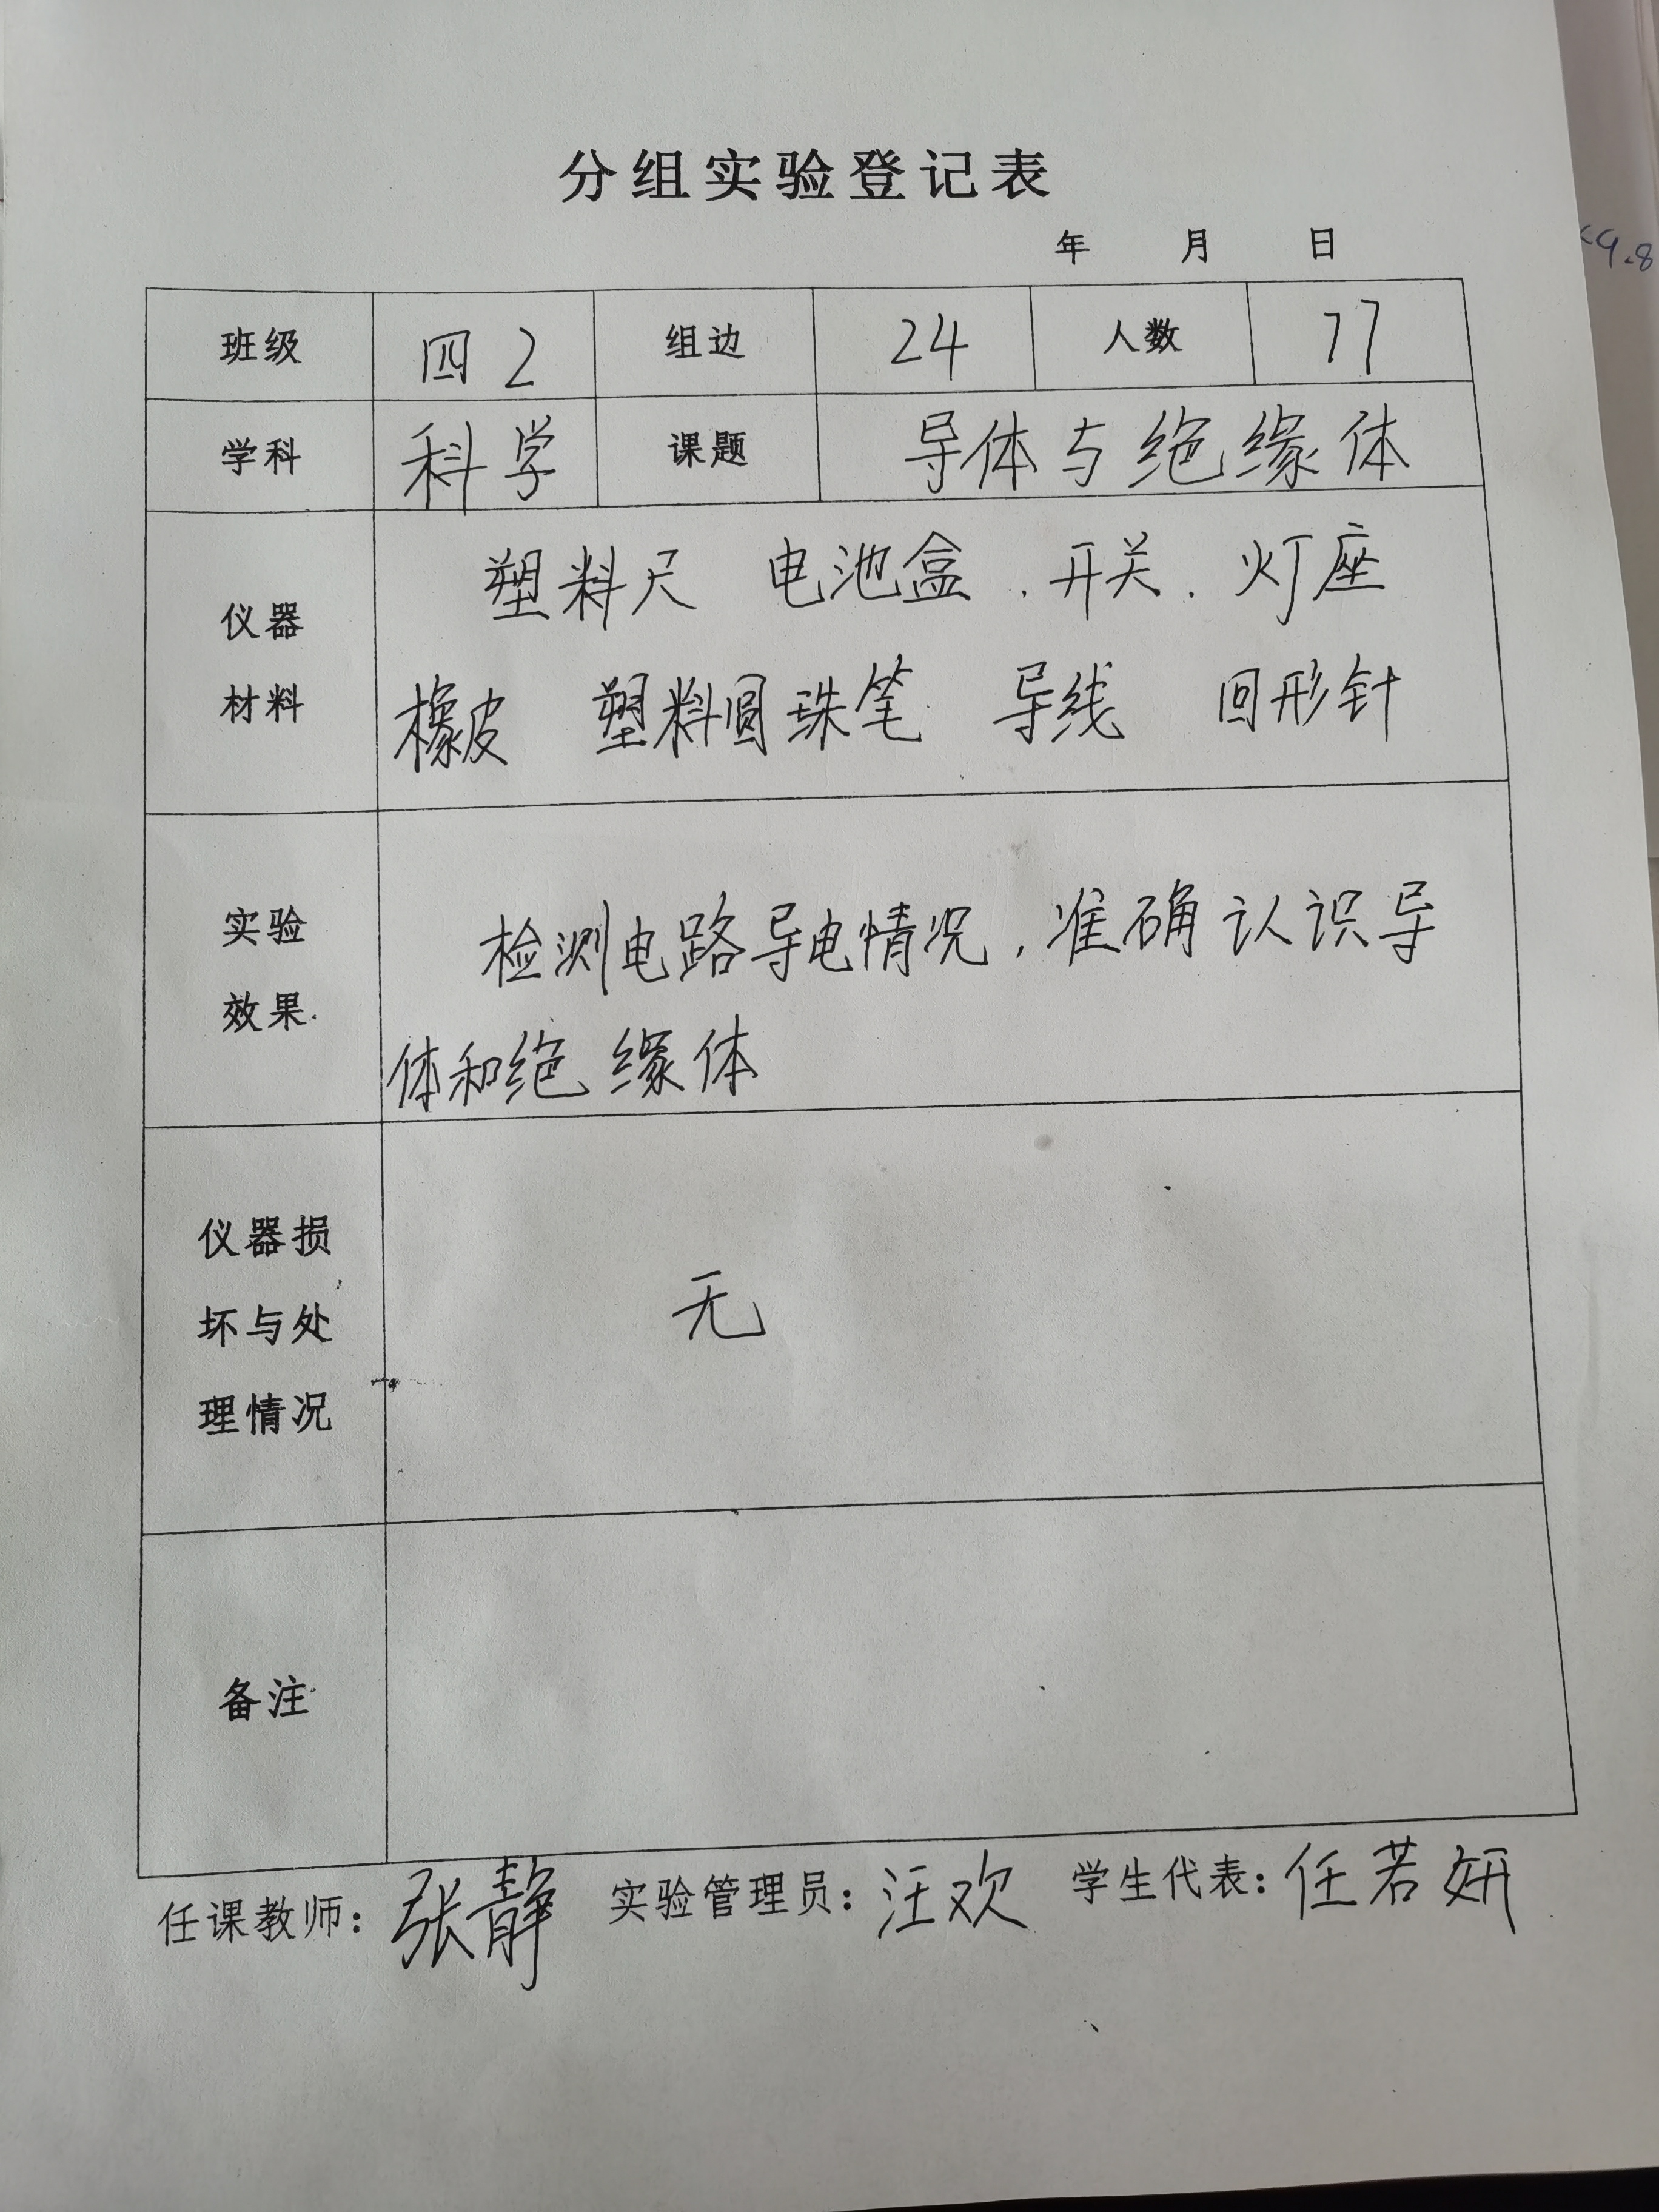 分组实验登记表
年 月 日
班级 四2 组边 24 人数 77
学科 科学 课题 导体与绝缘体
仪器
材料
塑料尺 电池盒.开关.灯座
橡皮 塑料圆珠笔 导线 回形针
实验
效果
检测电路导电情况,准确认识导
体和绝缘体
仪器损
坏与处
理情况
无
备注
任课教师:张静 实验管理员:汪欢 学生代表:任若妍